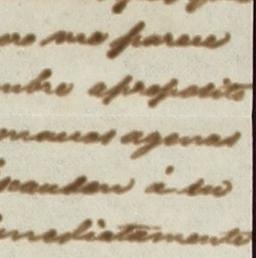 me parece
mbre aproposito
manos agenas
á su
inmediatamente